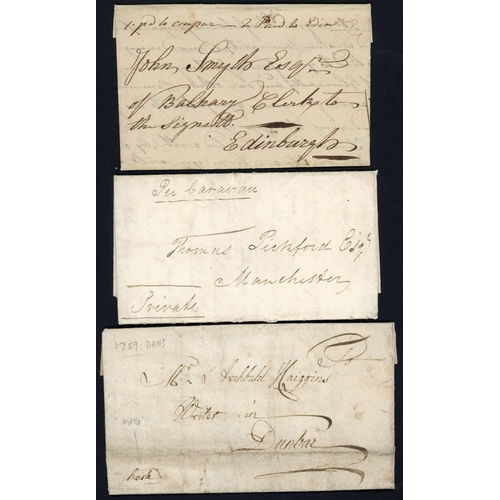 John Smyth Esqr
of Balhary Clerk to
the Signett
Edinburgh
Per Caravan
Thomas Pickford Esqr
Manchester
Private
1759:
To
Mr Archbald Higgins
Writer in
Dunbar
haste